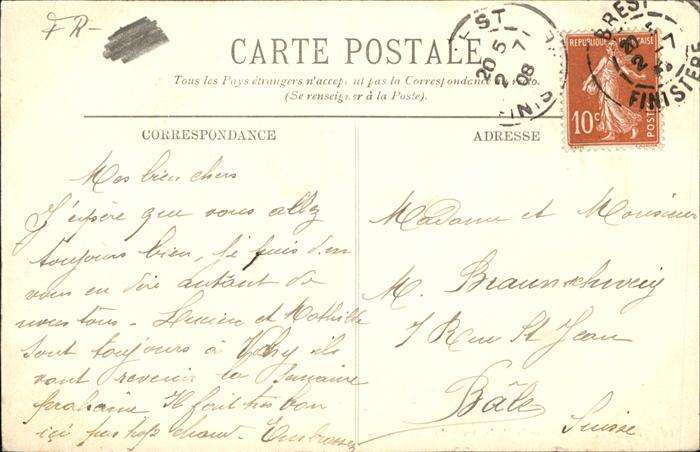 FR-
CARTE POSTALE
Tous les Pays étrangers n'acceptent pas la Correspondance au recto.
(Se renseigner à la Poste).
CORRESPONDANCE
Mes bien chers
J'espère que vous allez
toujours bien, je puis
vous en dire autant de
nous tous. Lucien et Mathilde
sont toujours à ils
vont revenir la semaine
prochaine Il fait très bon
ici pas trop chaud. Embrasser
ADRESSE
Madame et Monsieur
M. Braunschweig
7 Rue St Jean
Bâle
Suisse
BREST
20 5
2 - 7
08
FINISTÈRE
REPUBLIQUE FRANÇAISE
10c
POSTES
BREST
FINISTÈRE